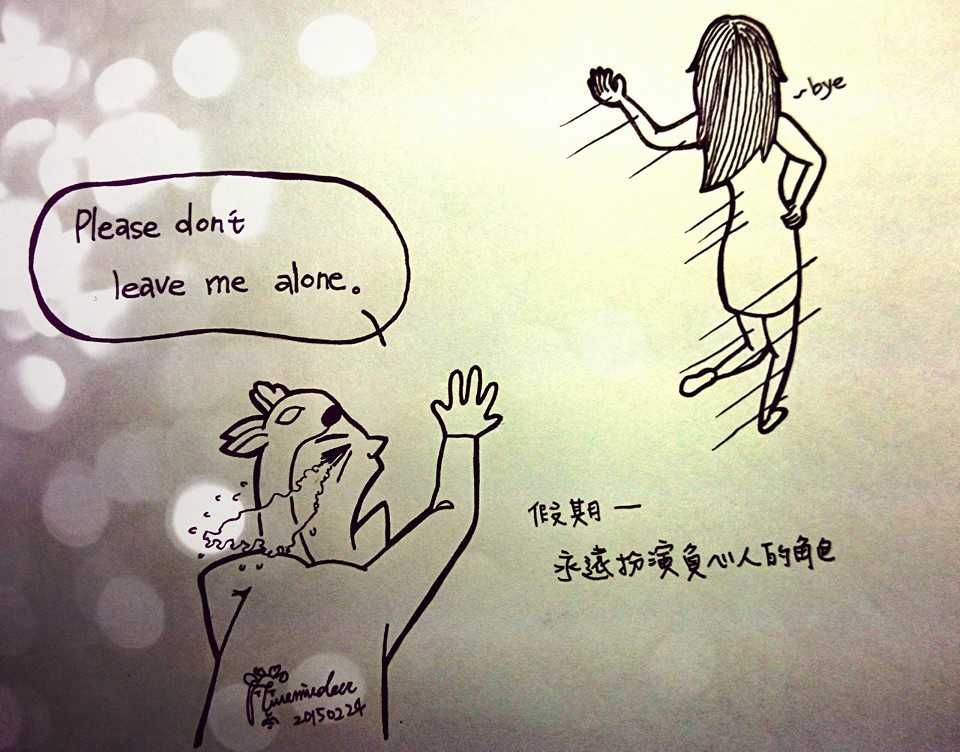 ~bye
Please don't
leave me alone。
假期一
永遠扮演負心人的角色
20150224